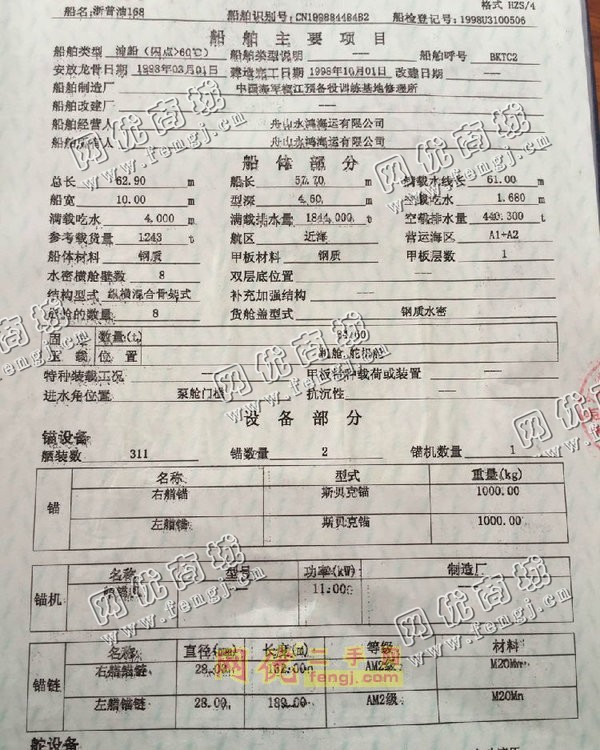 格式 HZS/4
船名:浙普油168 船舶识别号:CN199884484B2 船检登记号:1998U3100506
船舶主要项目
船舶类型 油船(闪点>60℃) 船舶类型说明 —— 船舶呼号 BKTC2
安放龙骨日期 1998年03月01日 建造完工日期 1998年10月01日 改建日期 ——
船舶制造厂 中国海军椒江预备役训练基地修理所
船舶改建厂 ——
船舶经营人 舟山永鸿海运有限公司
船舶所有人 舟山永鸿海运有限公司
船体部分
总长 62.90 m 船长 57.70 m 满载水线长 61.00 m
船宽 10.00 m 型深 4.50 m 空载吃水 1.680 m
满载吃水 4.000 m 满载排水量 1844.000 t 空载排水量 440.300 t
参考载货量 1243 t 航区 近海 营运海区 A1+A2
船体材料 钢质 甲板材料 钢质 甲板层数 1
水密横舱壁数 8 双层底位置 ——
结构型式 纵横混合骨架式 补充加强结构 ——
货舱的数量 8 货舱盖型式 钢质水密
固 数量(t)
压载 位置
特种装载工况 —— 甲板特种载荷或装置 ——
进水角位置 泵舱门槛 抗沉性 ——
设备部分
锚设备
舾装数 311 锚数量 2 锚机数量 1
锚 名称 型式 重量(kg)
右艏锚 斯贝克锚 1000.00
左艏锚 斯贝克锚 1000.00
锚机 名称 型号 功率(kW) 制造厂
11.000
锚链 名称 直径(mm) 长度(m) 等级 材料
右艏锚链 28.00 AM2级 M20Mn
左艏锚链 28.00 189.00 AM2级 M20Mn
舵设备
网优商城
www.fengj.com
网优二手网
fengj.com